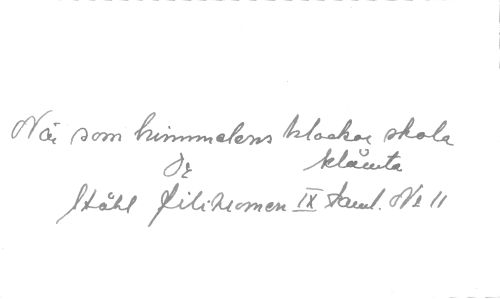 När som himmelens klockor skola
Dr klämta
Ståhl Filikromen IX saml. Nr 11